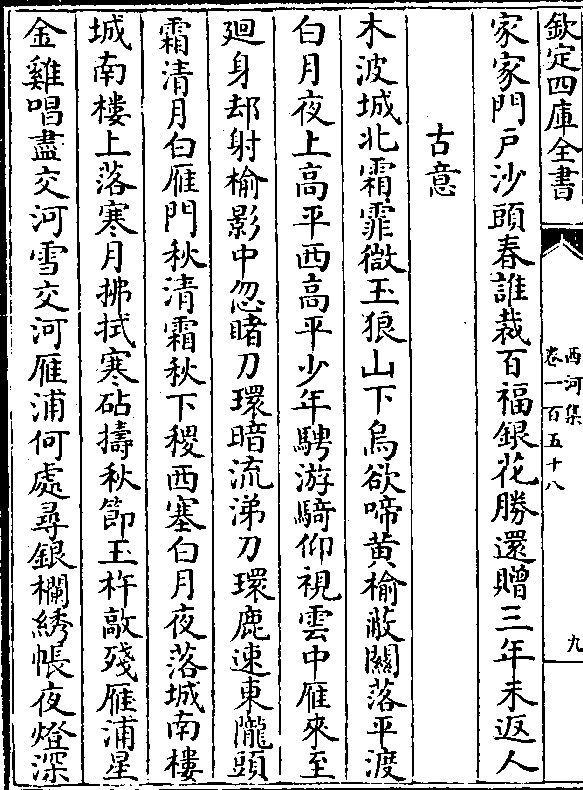 欽定四庫全書
西河集
卷一百五十八
九
家家門戶沙頭春誰裁百福銀花勝還贈三年未返人
古意
木波城北霜霏微玉狼山下烏欲啼黄榆蔽關落平渡
白月夜上高平西高平少年騁游騎仰視雲中雁來至
廻身却射榆影中忽睹刀環暗流涕刀環鹿速東隴頭
霜清月白雁門秋清霜秋下稷西塞白月夜落城南樓
城南樓上落寒月拂拭寒砧擣秋節玉杵敲殘雁浦星
金雞唱盡交河雪交河雁浦何處尋銀欄綉帳夜燈深